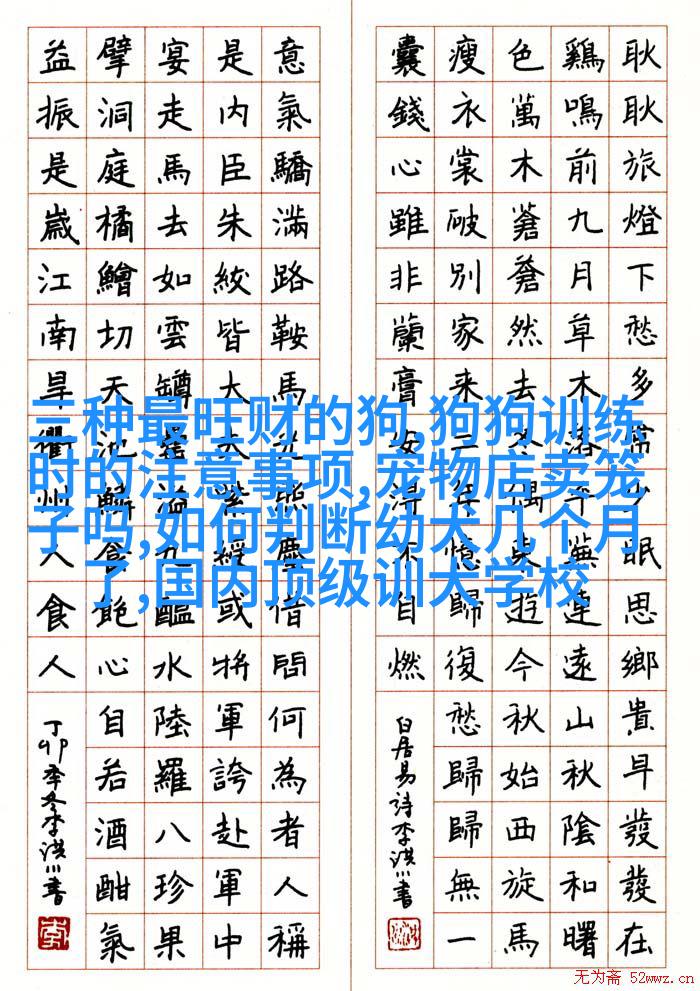 耿耿旅燈下愁多常少眠思鄉貴早發發在
鷄鳴前九月草木落平蕪連遠山秋陰和曙
色萬木蒼蒼然去冬偶東遊今秋始西旋馬
瘦衣裳破別家來二年憶歸復愁歸歸無一
囊錢心雖非蘭膏安得不自燃
白居易诗李洪川書
意氣驕滿路鞍馬光照塵借問何為者人稱
是內臣朱紱皆大夫紫綬或將軍誇赴軍中
宴走馬去如雲罇罍溢九醞水陸羅八珍果
擘洞庭橘鱠切天池鱗食飽心自若酒酣氣
益振是歲江南旱衢州人食人
丁卯季冬李洪川書
三种最旺财的狗,狗狗训练
时的注意事项,宠物店卖笼
子吗,如何判断幼犬几个月
了,国内顶级训犬学校
无为斋 52wwz.cn